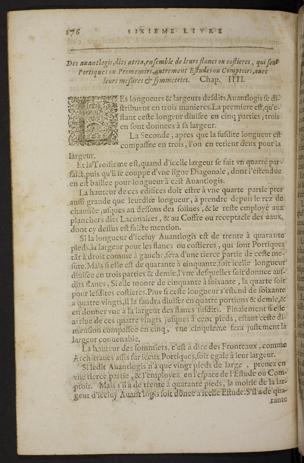 176 SIXIEME LIVRE
Des auantlogis, dits atria, ensemble de leurs flancs ou costieres, qui sont
Portiques ou Promenoirs, autrement Estudes ou Comptoirs, auec
leurs mesures & symmetries. Chap. IIII.
LEs longueurs & largeurs desdits Auantlogis se di-
stribuent en trois manieres. La premiere est, qu'e-
stant ceste longueur diuisee en cinq parties, trois
en sont donnees à sa largeur.
La Seconde, apres que la susdite longueur est
compassee en trois, l'on en retient deux pour la
largeur.
Et la Troisieme est, quand d'icelle largeur se fait vn quarré par-
faict, puis qu'il se couppe d'vne ligne Diagonale, dont l'estendue
en est baillee pour longueur à cest Auantlogis.
La hauteur de ces edifices doit estre à vne quarte partie pres
aussi grande que leurdite longueur, à prendre depuis le rez de
chaussee, iusques au dessous des soliues, & le reste employé aux
planchers dits Lacunaires, & au Coffre ou receptacle des eaux,
dont cy dessus est faicte mention.
Si la longueur d'icelluy Auantlogis est de trente à quarante
pieds, la largeur pour les flancs ou costieres, qui sont Portiques
tãt à droit comme à gauche, sera d'vne tierce partie de ceste me-
sure. Mais si elle est de quarante à cinquante, soit icelle longueur
diuisee en trois parties & demie, l'vne desquelles soit donnee aus-
dits flancs. Si elle monte de cinquante à soixante, la quarte soit
pour lesdites costieres. Puis si ceste longueur s'estend de soixante
a quatre vingts, il la faudra diuiser en quatre portions & demie, &
en donner vne à la largeur des flancs susdits. Finalement si elle
arriue de ces quatre vingts iusques à cent pieds, estant ceste di-
mension compassee en cinq, vne cinquieme fera iustement la
largeur conuenable.
La hauteur des sommiers, c'est à dire des Fronteaux, comme
Architraues assis sur iceux Portiques, soit egale à leur largeur.
Si ledit Auantlogis n'a que vingt pieds de large, prenez en
vne tierce partie, & l'employez en l'espace de l'Estude ou Com-
ptoir. Mais s'il a de trente à quarante pieds, la moitié de la lar-
geur d'icelluy Auantlogis soit donnee a icelle Estude. S'il a de qua-
rante